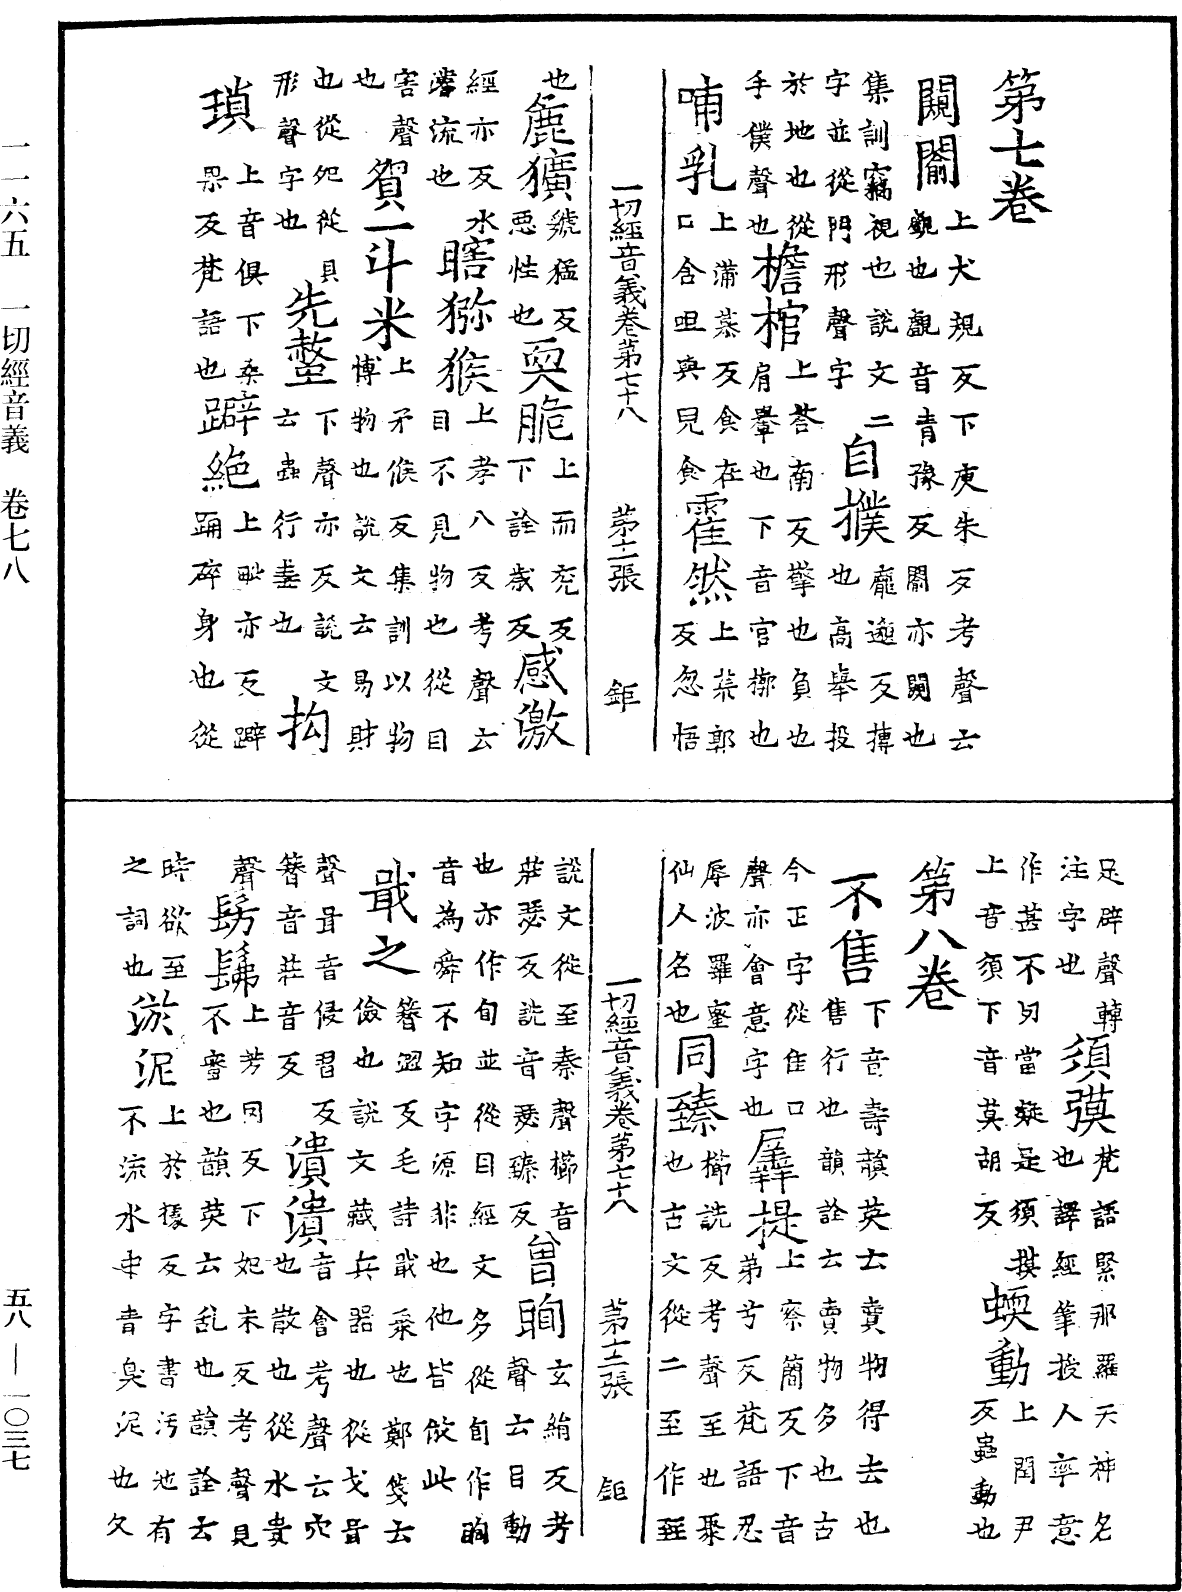 第七卷
闚𨵦 上犬規反下庾朱反考聲云
覷也覰音青豫反𨵦亦闚也
集訓竊視也說文二
字並從門形聲字 自撲 龐邈反摶
也高舉投
於地也從
手僕聲也 檐棺 上荅南反擎也負也
肩轝也下音官槨也
哺乳 上蒲慕反食在
口含咀與兒食 霍然 上荒郭
反忽悟
一切經音義卷第七十八 第十一張 鉅
也 麁獷 虢猛反
惡性也 耎脆 上而兗反
下詮歲反 感激
經亦反水
濬流也 瞎獼猴 上孝八反考聲云
目不見物也從目
害聲
也 貿一斗米 上矛候反集訓以物
博物也說文云易財
也從夗從貝
形聲字也 先螫 下聲亦反說文
云蟲行毒也 拘
瑣 上音俱下桑
果反梵語也 躃絕 上毗亦反躃
踊碎身也從
足辟聲轉
注字也 須彂 梵語緊那羅天神名
也譯經筆授人率意
作甚不切當疑是須摸
上音須下音莫胡反 蝡動 上閏尹
反蟲動也
第八卷
不售 下音壽韻英云賣物得去也
售行也韻詮云賣物多也古
今正字從隹口
聲亦會意字也 羼提 上察簡反下音
弟兮反梵語忍
辱波羅蜜
仙人名也 同臻 櫛詵反考聲至也聚
也古文從二至作臸
一切經音義卷第七十八 第十二張 鉅
說文從至秦聲櫛音
莊瑟反詵音瑟臻反 曾眴 玄絹反考
聲云目動
也亦作旬並從目經文多從旬作眴
音為舜不知字源非也他皆倣此
戢之 簪澀反毛詩戢聚也鄭箋云
儉也說文藏兵器也從戈咠
聲咠音侵習反
簪音莊音反 潰潰 音會考聲云穴
也散也從水貴
聲 髣髴 上芳罔反下妃未反考聲見
不審也韻英云乱也韻詮云
時欲至
之詞也 淤泥 上於據反字書污池有
不流水中青臭泥也久
一一六五 一切經音義 卷七八 五八—一〇三七